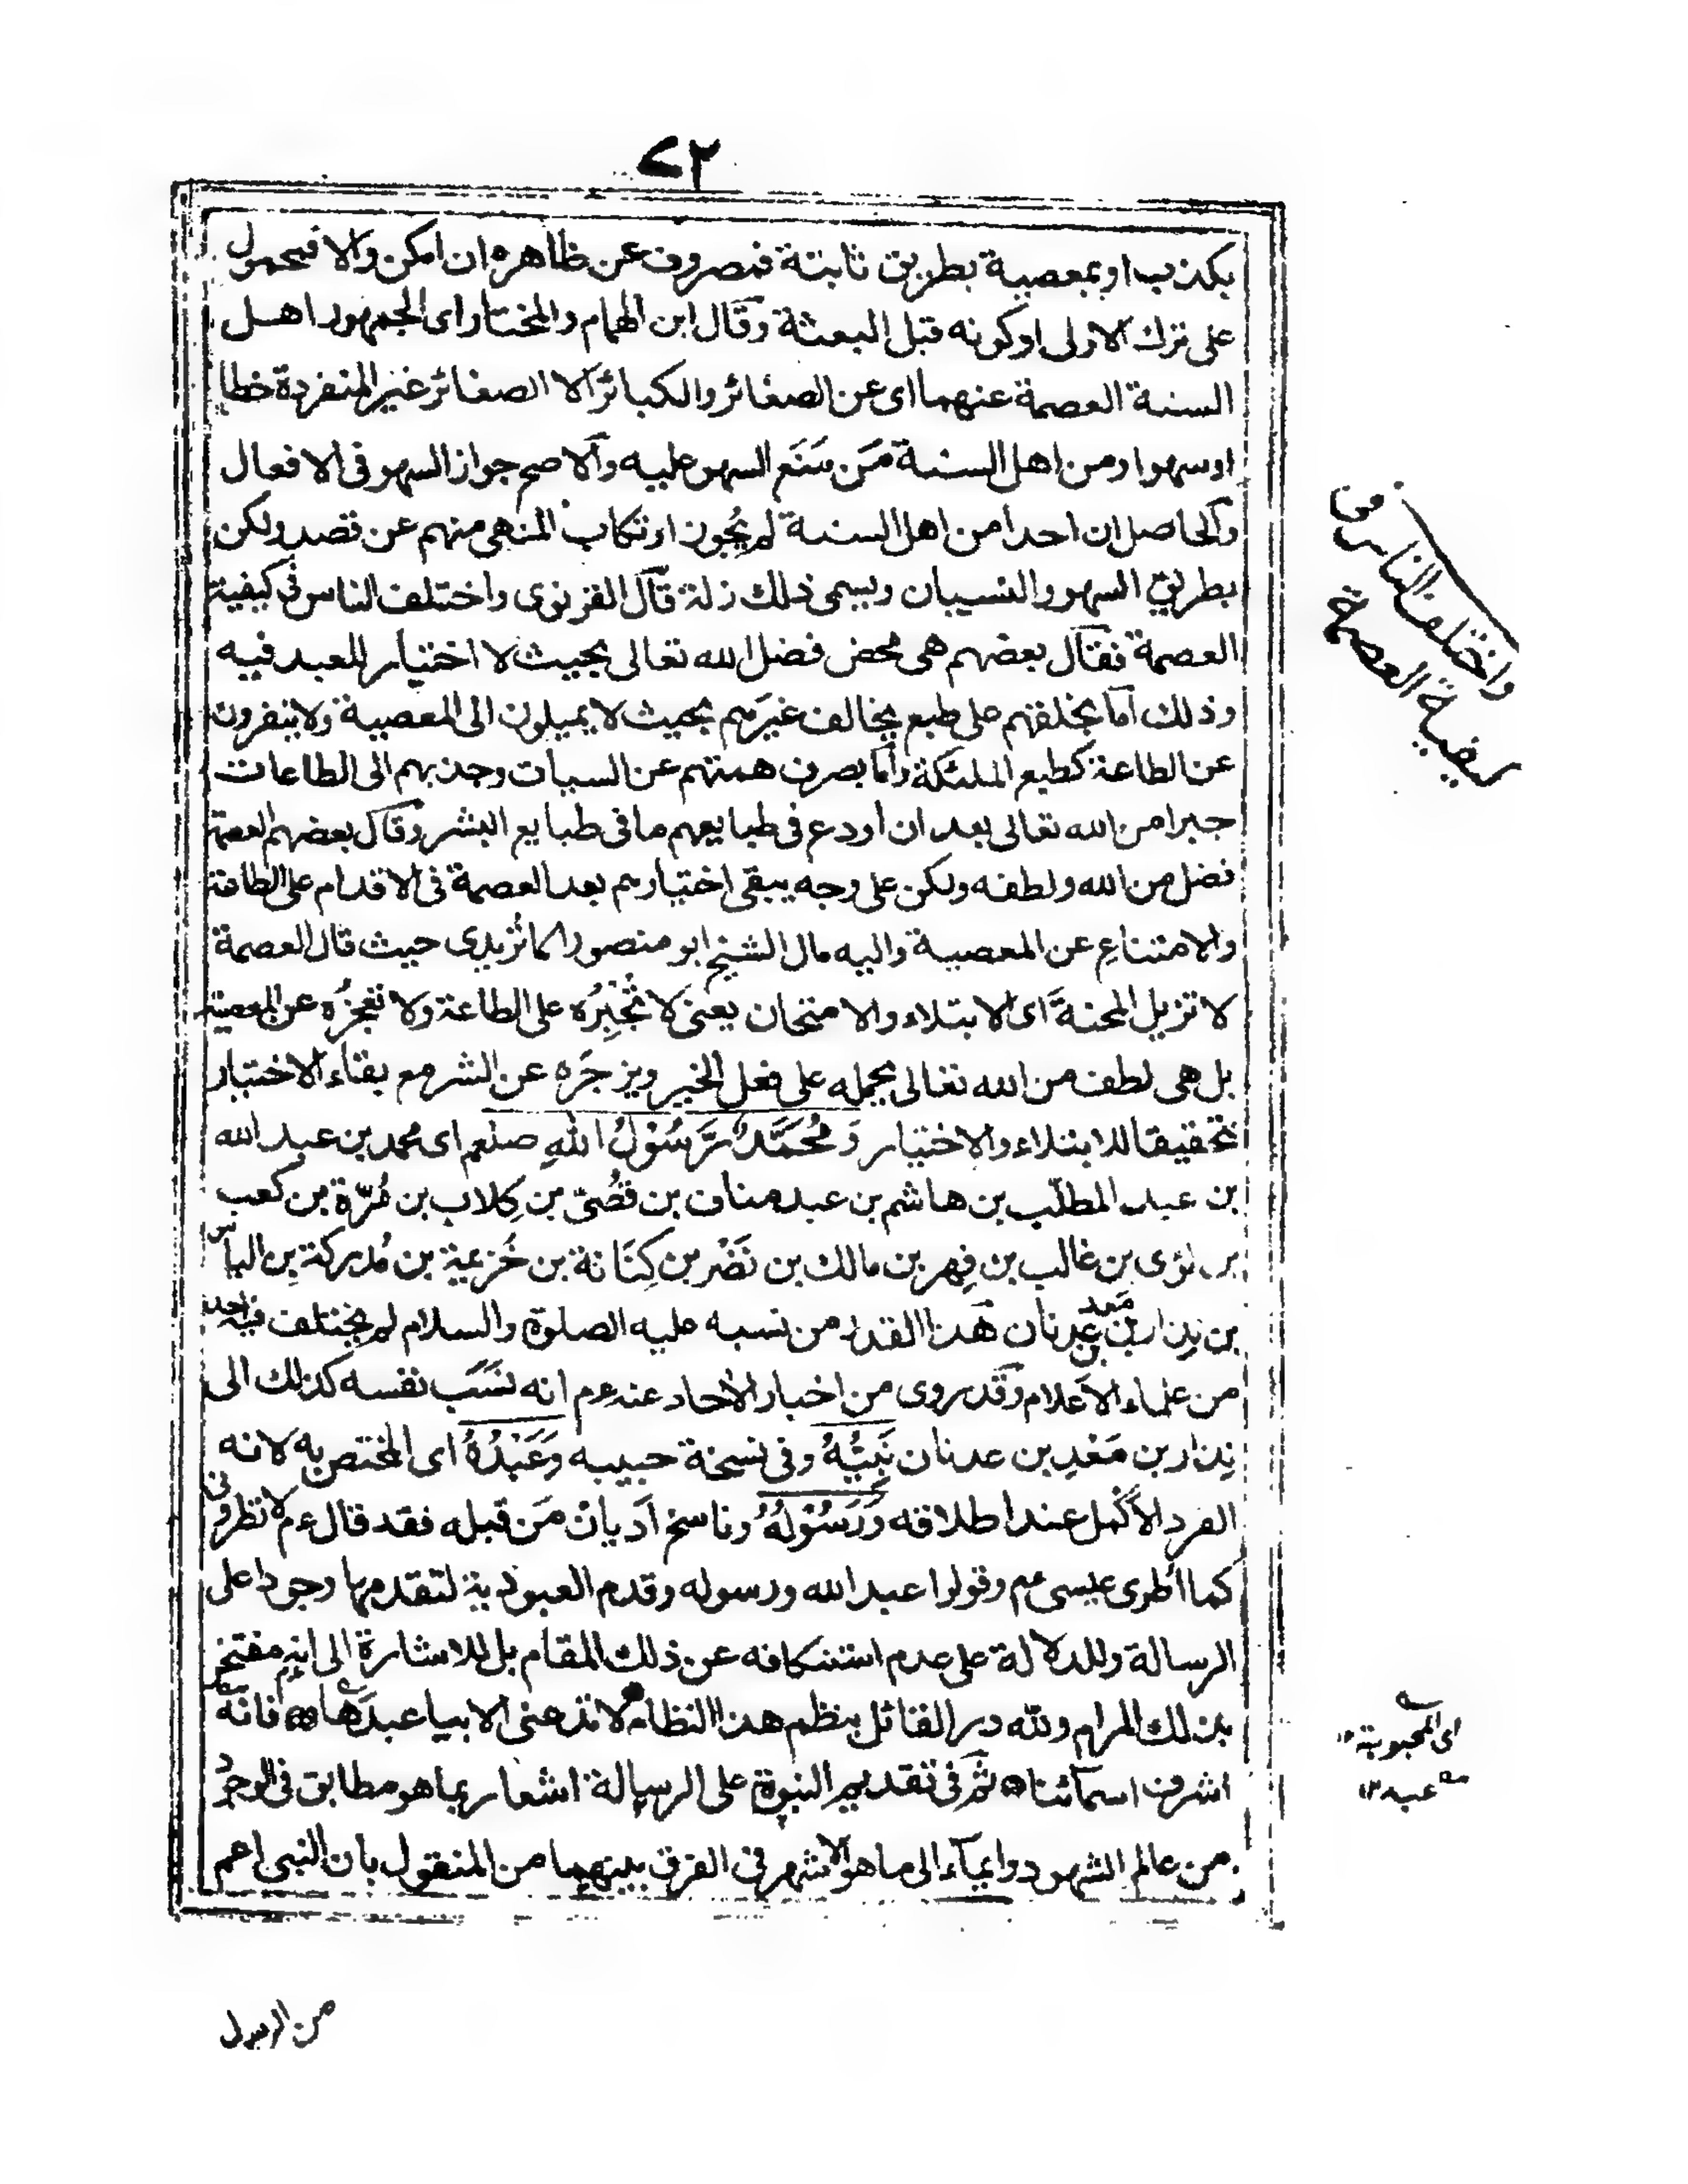 ٧٢
بكذب او بمعصية بطريق ثابتة فمصروف عن ظاهره ان امكن والا فمحمول
على ترك الاولى او كونه قبل البعثة وقال ابن الهمام والمختار اى الجمهور اهل
السنة العصمة عنهما اى عن الصغائر والكبائر الا الصغائر غير المنفردة خطا
او سهوا ومن اهل السنة من منع السهو عليه والاصح جواز السهو فى الافعال
والحاصل ان احدا من اهل السنة لم يجوز ارتكاب المنهى منهم عن قصد ولكن
بطريق السهو والنسيان ويسمى ذلك زلة قال القونوى واختلف الناس فى كيفية
العصمة فقال بعضهم هى محض فضل الله تعالى بحيث لا اختيار للعبد فيه
وذلك اما بخلقهم على طبع يخالف غيرهم بحيث لا يميلون الى المعصية ولا ينفرون
عن الطاعة كطبع الملئكة واما بصرف همتهم عن السيأت وجذبهم الى الطاعات
جبرا من الله تعالى بعد ان اودع فى طبايعهم ما فى طبايع البشر وقال بعضهم العصمة
فضل من الله ولطفه ولكن على وجه يبقى اختيارهم بعد العصمة فى الاقدام على الطاعة
والامتناع عن المعصية واليه مال الشيخ ابو منصور الماتريدى حيث قال العصمة
لا تزيل المحنة اى الابتلاء والامتحان يعنى لا تُجْبِرُه على الطاعة ولا تعجزُه عن المعصية
بل هى لطف من الله تعالى يحمله على فعل الخير ويزجَره عن الشر مع بقاء الاختيار
تحقيقا للابتلاء والاختيار وَمُحَمَّدٌ رَّسُوْلُ اللهِ صلعم اى محمد بن عبد الله
بن عبد المطلّب بن هاشم بن عبد مناف بن قُصَىّ بن كِلاب بن مُرّة بن كعب
بن لؤى بن غالب بن فِهر بن مالك بن نَضْر بن كِنَانة بن خُزيمة بن مُدركة بن الياس
بن نِزار بن مَعد بن عدنان هذا القدر من نسبه عليه الصلوة والسلام لم يختلف فيه احد
من علماء الاعلام وقد روى من اخبار الأحاد عنه عم انه نَسَبَ نفسه كذلك الى
نِزار بن مَعْدِ بن عدنان نَبِيُّهُ وفى نسخة حبيبه وَعَبْدُهُ اى المختص به لانه
الفرد الاكمل عند اطلاقه وَرَسُوْلُهُ وناسخ اَديانْ مَن قبله فقد قال عم لا تطرونى
كما اُطرى عيسى عم وقولوا عبد الله ورسوله وقدم العبودية لتقدمها وجودا على
الرسالة وللدلالة على عدم استنكافه عن ذلك المقام بل للاشارة الى انه مفتخر
بذلك المرام ولله در القائل بنظم هذا النظام لا تدعنى الا بيا عبدَها فانه
اشرف اسمائنا ثم فى تقديم النبوة على الرسالة اشعار بما هو مطابق فى الوجود
من عالم الشهود وايماء الى ما هو الاشهر فى الفرق بينهما من المنقول بان النبى اعم
من الرسول
واختلف الناس فى
كيفية العصمة
اى المحبوبة ١٢
عبد ١٢